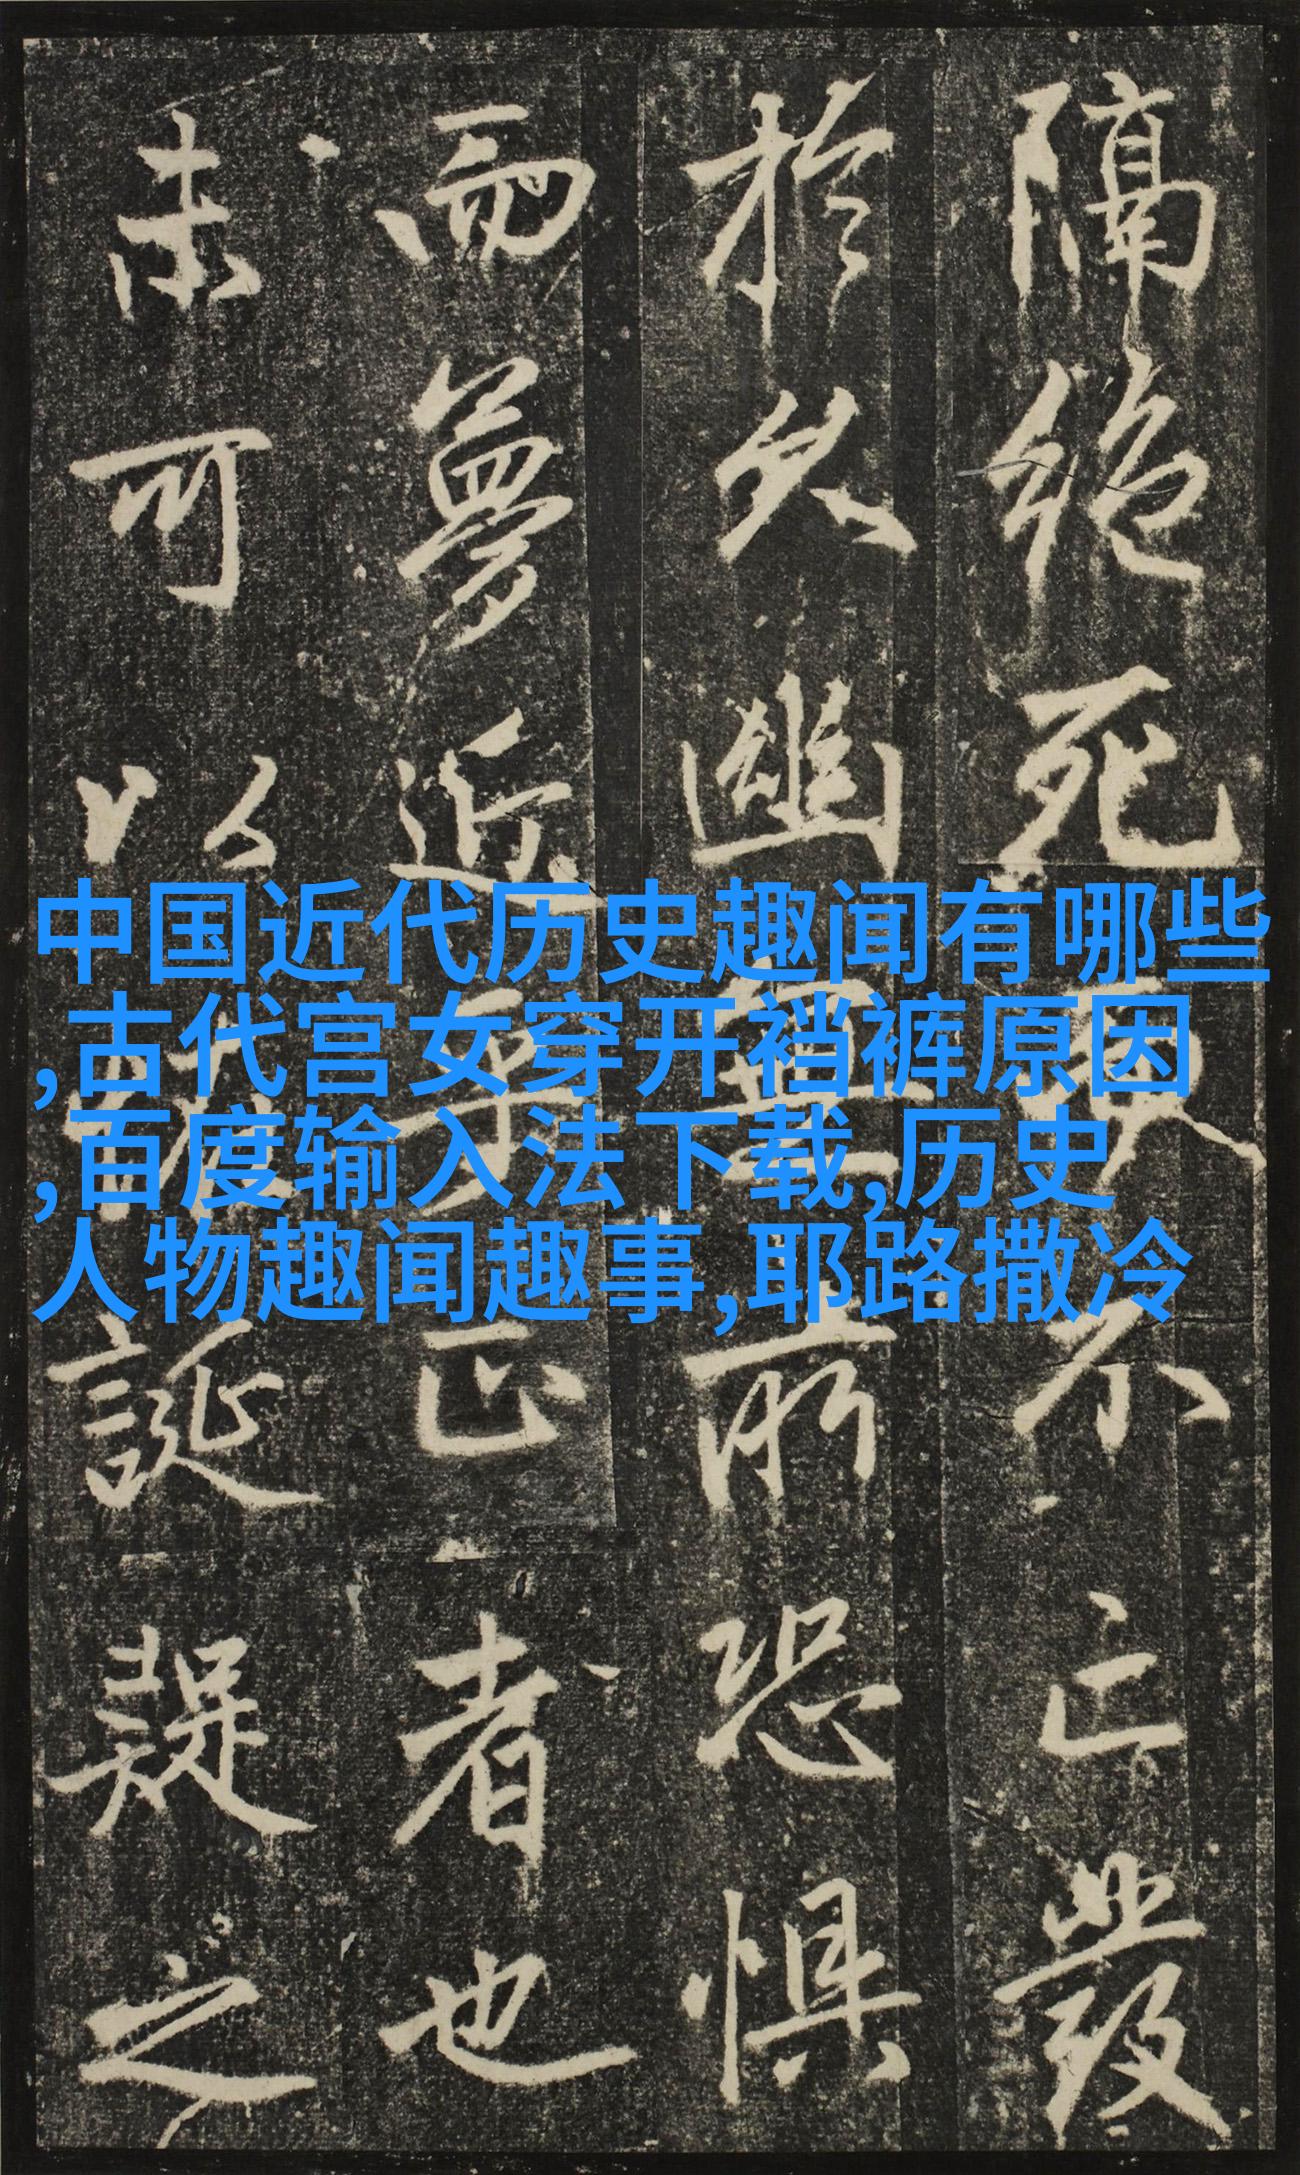 隔絕死不亡發
於久幽而恐懼
而夢近乎正者也
未可以誕疑之
中国近代历史趣闻有哪些
,古代宫女穿开裆裤原因
,百度输入法下载,历史
人物趣闻趣事,耶路撒冷